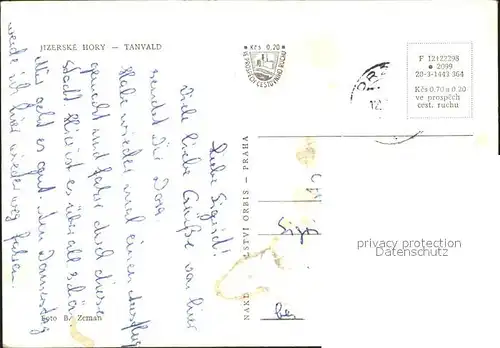 JIZERSKÉ HORY — TANVALD
• Kčs 0,20 •
VE PROSPĚCH CESTOVNÍHO RUCHU
F 12122298
• 2099
20-3-1443 364
Kčs 0,70 a 0,20
ve prospěch
cest. ruchu
Liebe Sigrid!
Viele liebe Grüße von hier
sendet Dir Dora
Habe wieder mal einen Ausflug
gemacht und fahre durch diese
Stadt. Hier ist es überall schön.
Mir geht es gut. Am Donnerstag
werde ich hier wieder weg fahren.
NAKL STVÍ ORBIS — PRAHA
Foto B. Zeman
privacy protection
Datenschutz